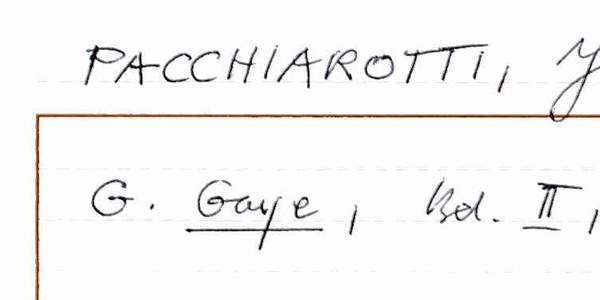 PACCHIAROTTI, J
G. Gaye, Bd. II,